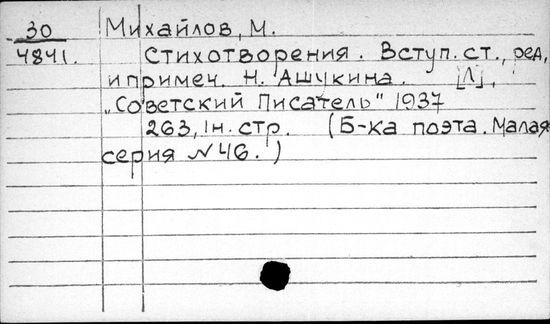 30 Михайлов, М.
4841. Стихотворения. Вступ. ст., ред,
и примеч. Н. Ашукина. [Л],
„Советский Писатель" 1937
263, 1н. стр. (Б-ка поэта. Малая
серия №46.)